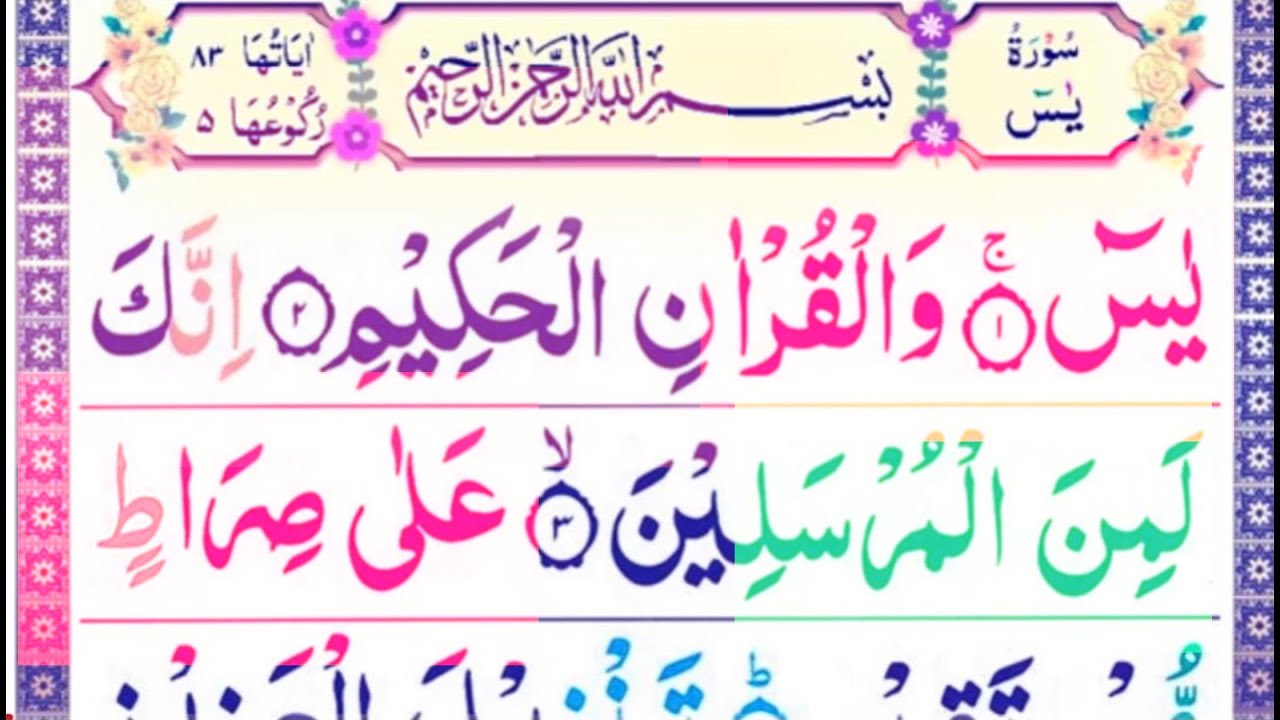 سُوْرَةُ يٰسٓ
بِسْمِ اللّٰهِ الرَّحْمٰنِ الرَّحِيْمِ
اٰيَاتُهَا ٨٣
رُكُوْعُهَا ٥
يٰسٓ ۚ ﴿١﴾ وَالْقُرْاٰنِ الْحَكِيْمِ ﴿٢﴾ اِنَّكَ
لَمِنَ الْمُرْسَلِيْنَ ۙ ﴿٣﴾ عَلٰى صِرَاطٍ
مُّسْتَقِيْمٍ ؕ تَنْزِيْلَ الْعَزِيْزِ